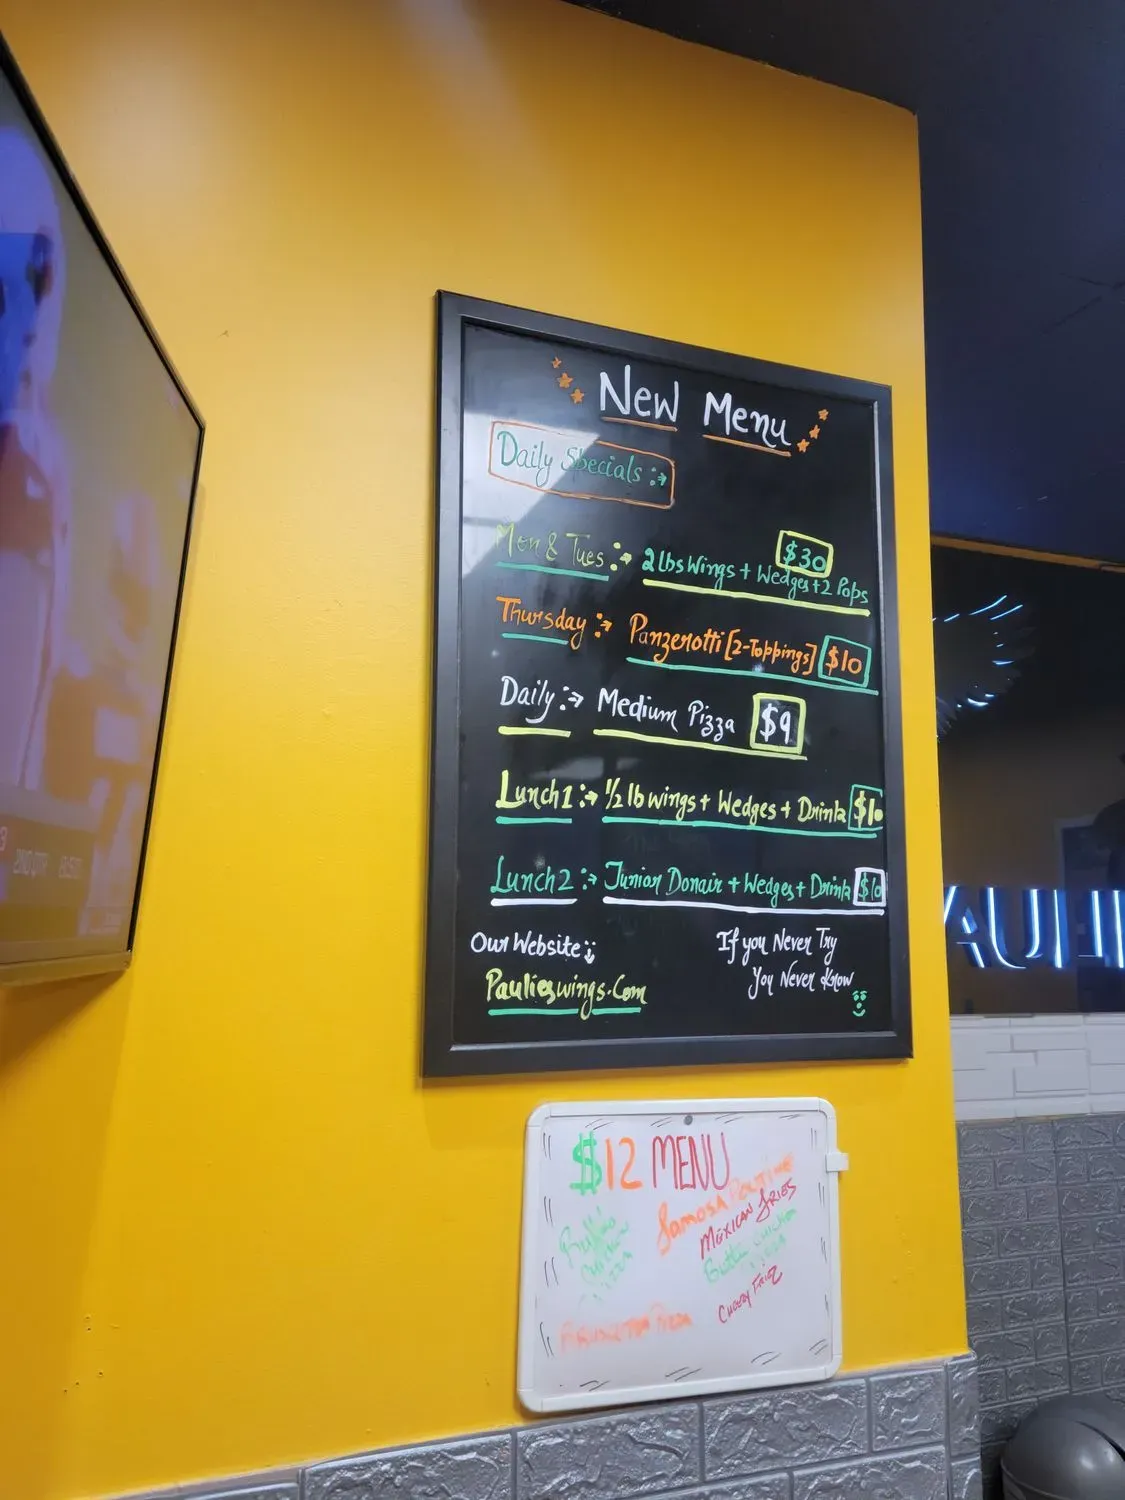 New Menu
Daily Specials :→
Mon & Tues :→ 2 lbs Wings + Wedges + 2 Pops $30
Thursday :→ Panzerotti [2-Toppings] $10
Daily :→ Medium Pizza $9
Lunch 1 :→ 1/2 lb wings + Wedges + Drink $10
Lunch 2 :→ Junior Donair + Wedges + Drink $10
Our Website
Paulieswings.Com
If you Never Try
You Never Know
$12 MENU
Samosa Poutine
Mexican Fries
Buffalo Chicken Pizza
Butter Chicken Pizza
Pizza
AULI
2ND QTR